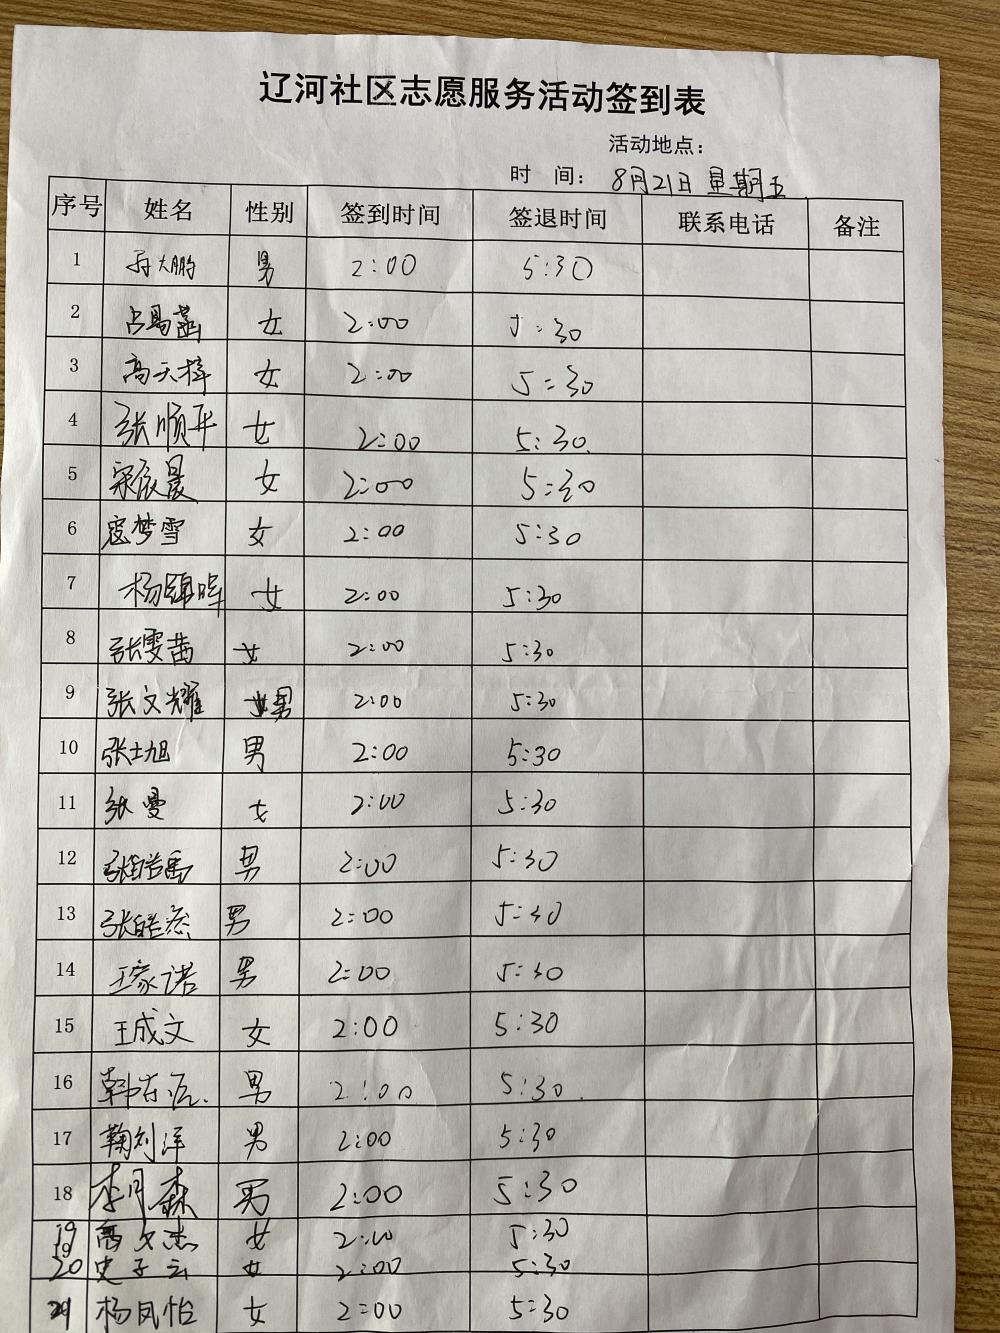 辽河社区志愿服务活动签到表
活动地点：
时 间： 8月21日 星期五
序号 姓名 性别 签到时间 签退时间 联系电话 备注
1 大鹏 男 2:00 5:30
2 女 2:00 5:30
3 高天梓 女 2:00 5:30
4 张顺平 女 2:00 5:30
5 宋依晨 女 2:00 5:30
6 寇梦雪 女 2:00 5:30
7 杨锦晖 女 2:00 5:30
8 张雯茜 女 2:00 5:30
9 张文耀 男 2:00 5:30
10 张士旭 男 2:00 5:30
11 张曼 女 2:00 5:30
12 男 2:00 5:30
13 男 2:00 5:30
14 王家诺 男 2:00 5:30
15 王成文 女 2:00 5:30
16 男 2:00 5:30
17 鞠刘洋 男 2:00 5:30
18 李月森 男 2:00 5:30
19 高文杰 女 2:00 5:30
20 史子云 女 2:00 5:30
21 杨凤怡 女 2:00 5:30